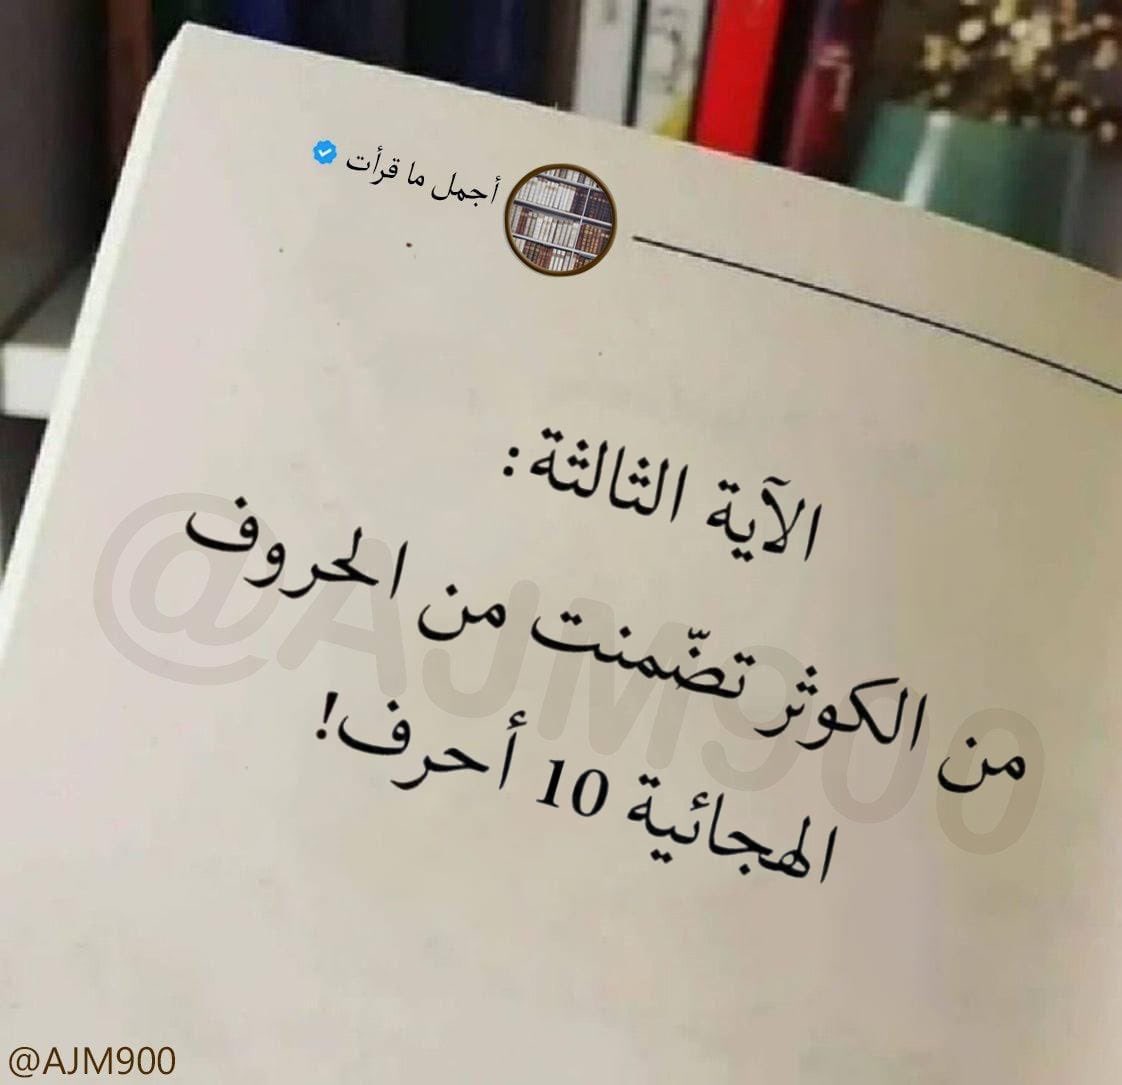 أجمل ما قرأت
الآية الثالثة:
من الكوثر تضّمنت من الحروف
الهجائية 10 أحرف!
@AJM900
@AJM900